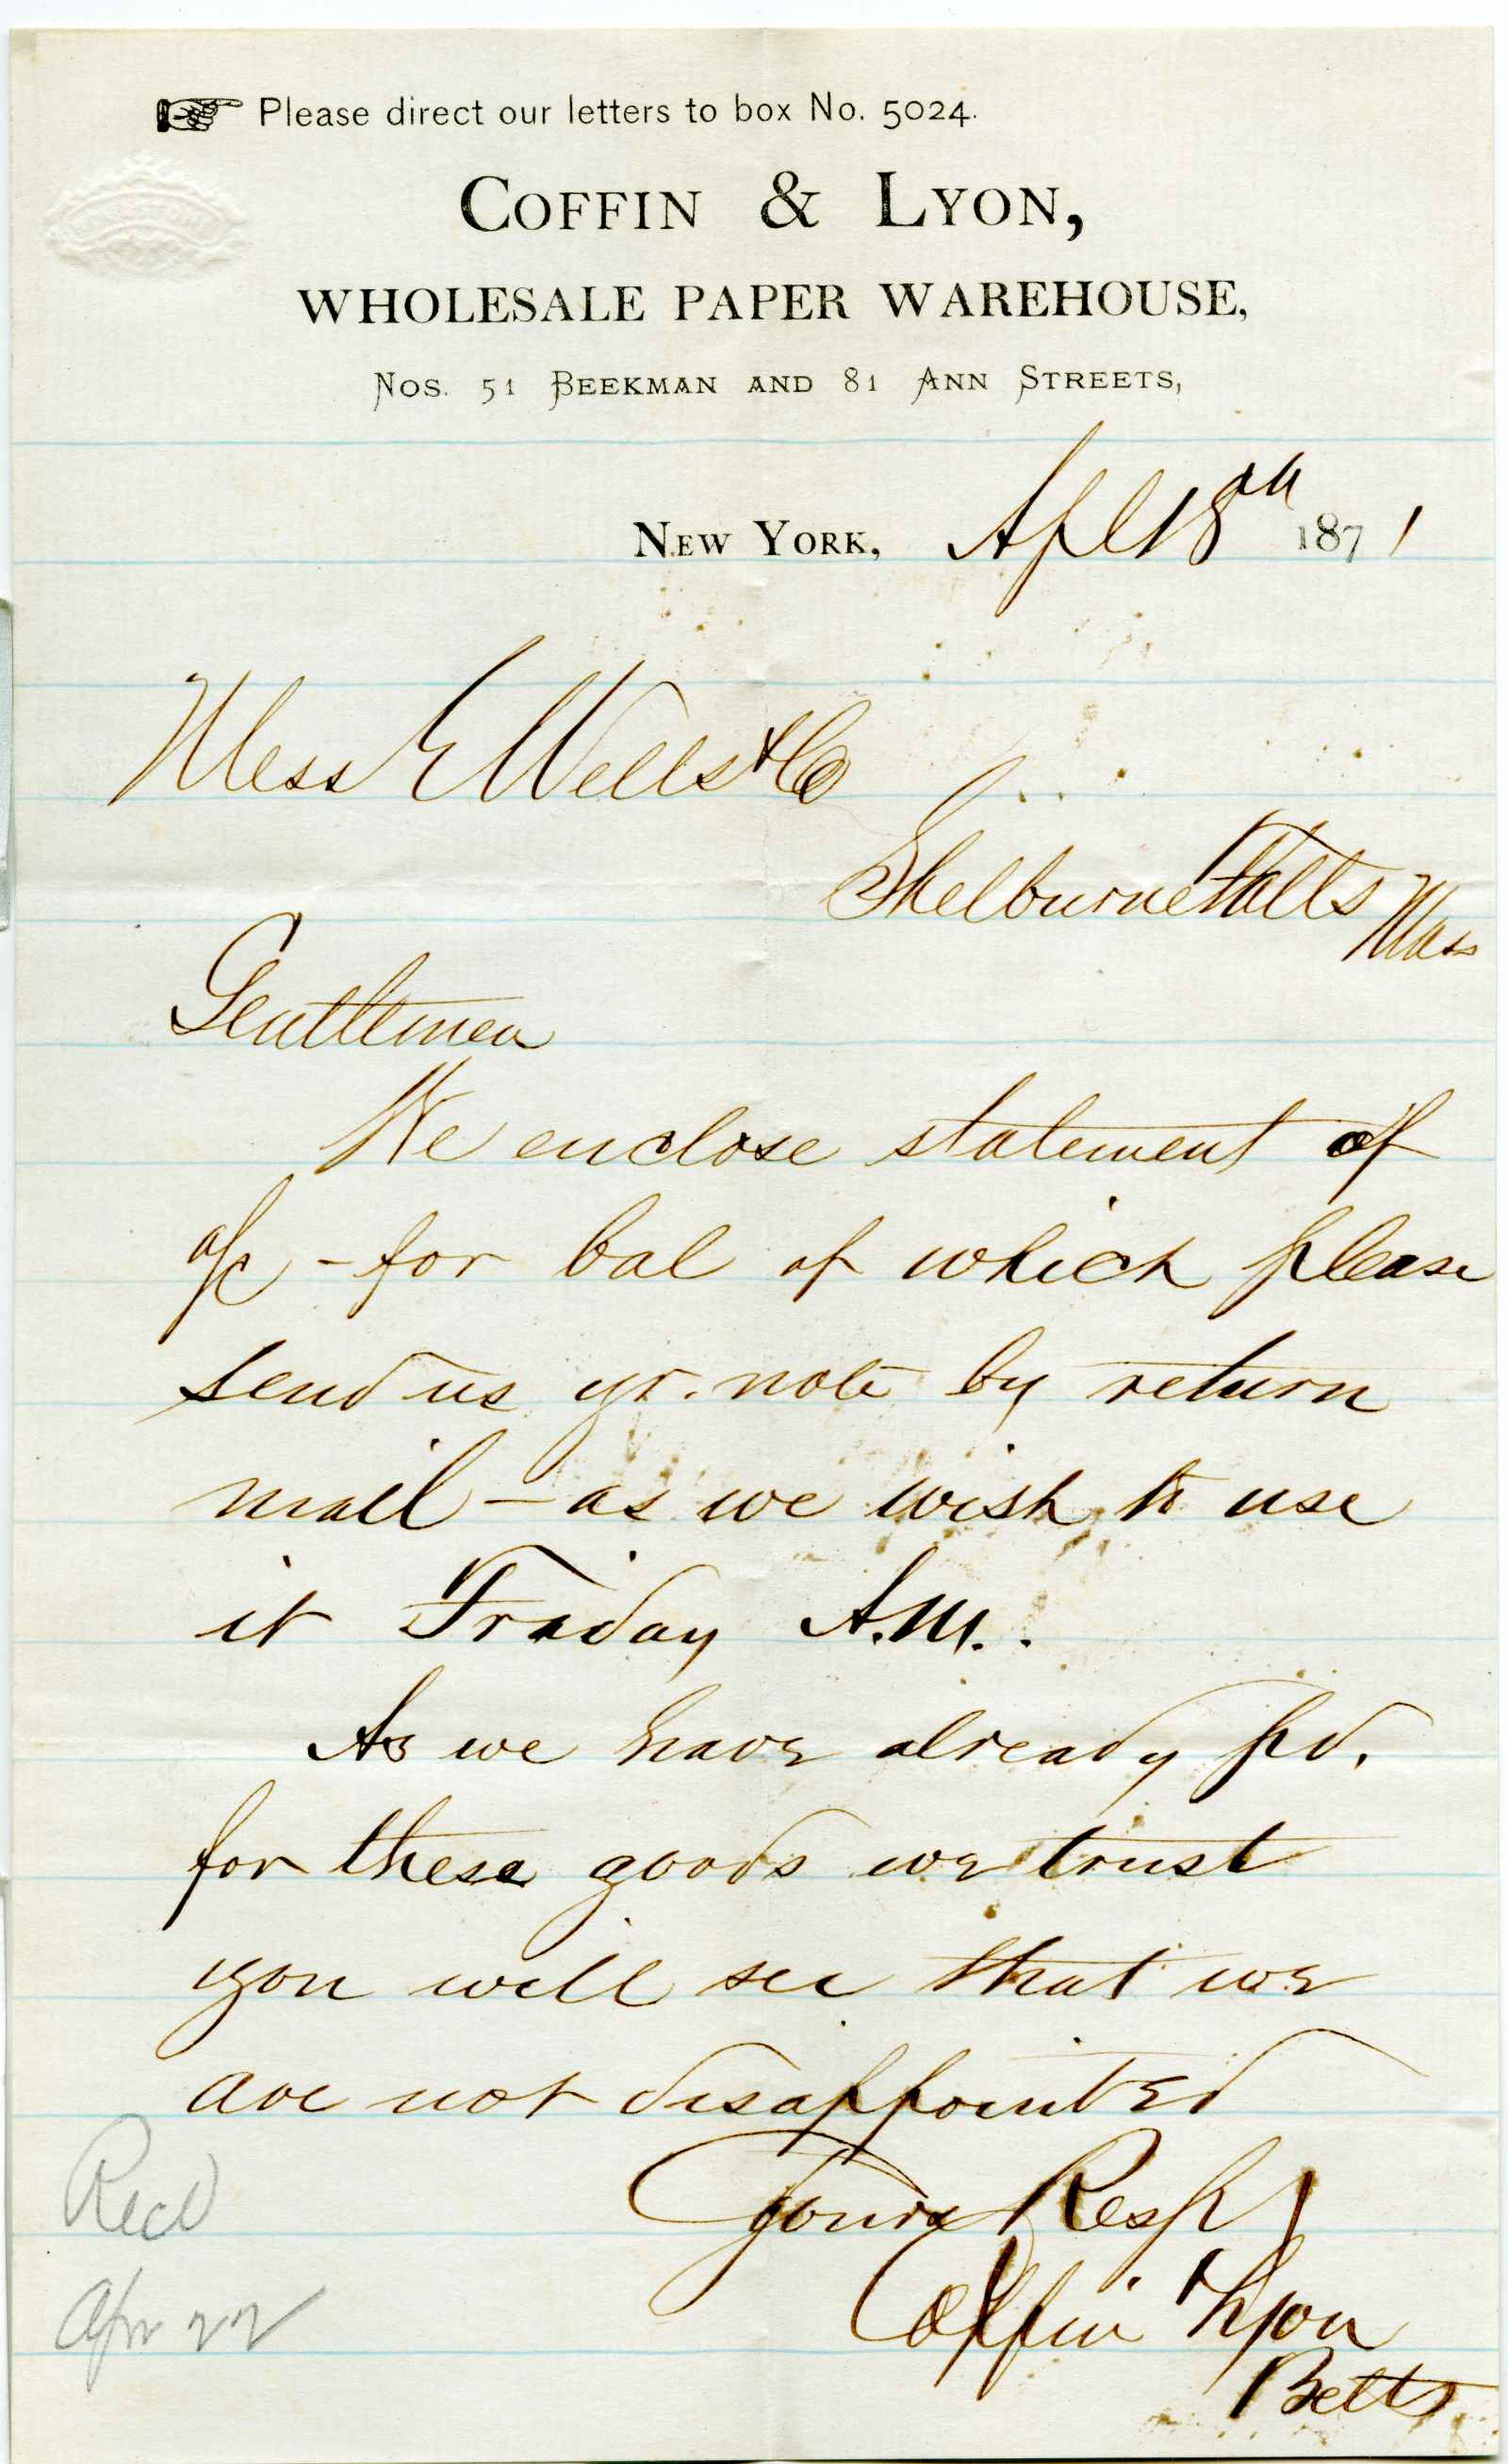 Please direct our letters to box No. 5024.
COFFIN & LYON,
WHOLESALE PAPER WAREHOUSE,
NOS. 51 BEEKMAN AND 81 ANN STREETS,
NEW YORK, Apl 18th 1871
Mess E Wells & Co
Shelburne Falls
Mass
Gentlemen
We enclose statement of
a/c - for bal of which please
send us yr. note by return
mail - as we wish to use
it Friday A.M..
As we have already pd.
for these goods we trust
you will see that we
are not disappointed
Yours Resp
Coffin & Lyon
Betts
Recd
Apr 22